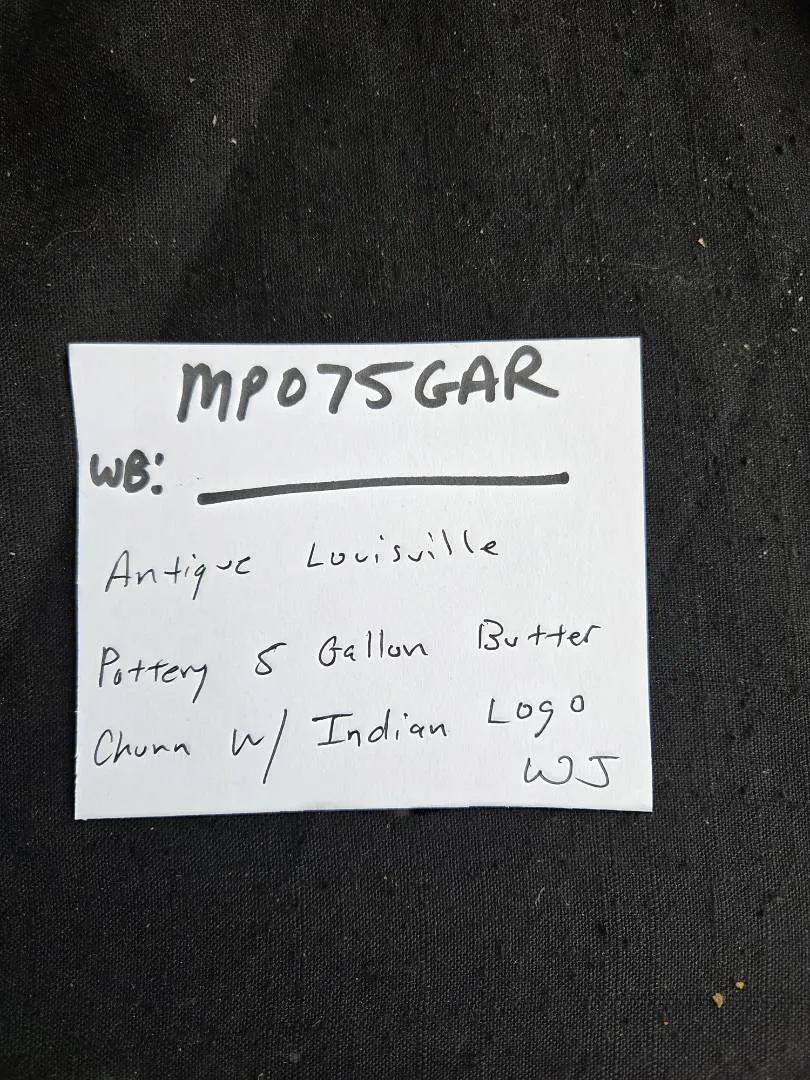 MP075GAR
WB: ________
Antique Louisville
Pottery 5 Gallon Butter
Churn w/ Indian Logo
WJ